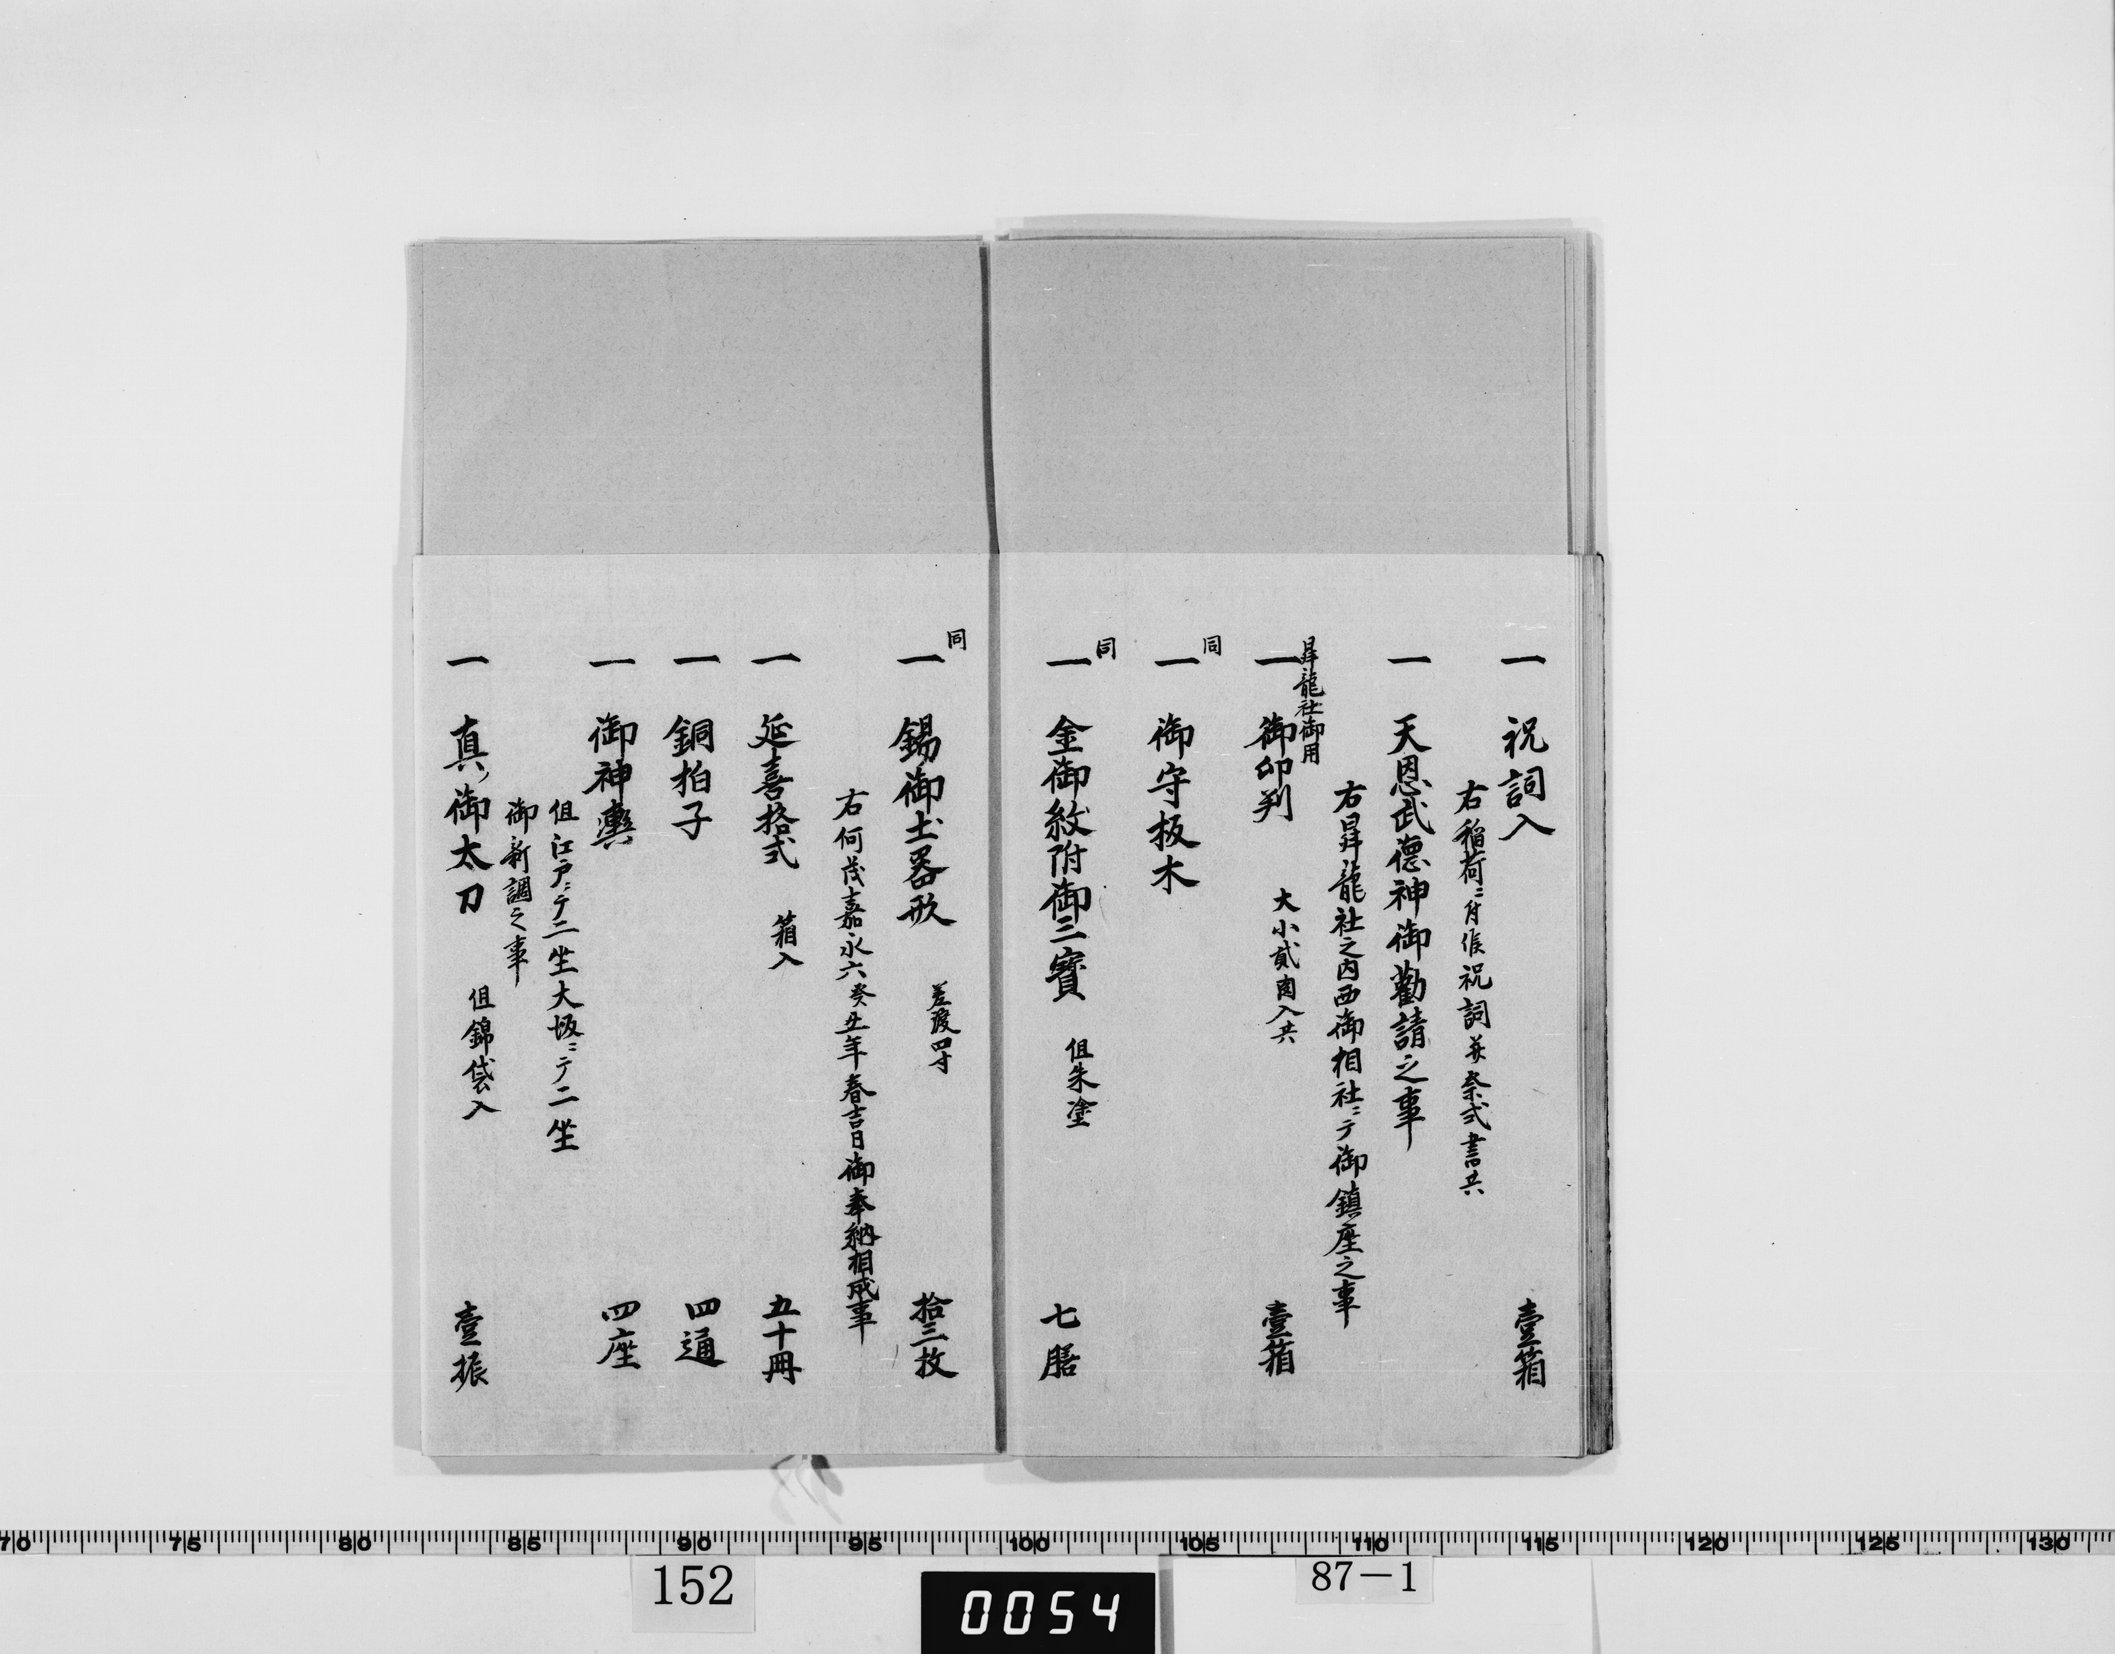 一 祝詞入 壹箱
右稲荷ニ付候祝詞并祭式書共
一 天恩武德神御勸請之事
右昇龍社之内西御相社ニテ御鎮座之事
昇龍社御用
一 御印判 大小貳 入共 壹箱
同
一 御守板木
同
一 金御紋附御三寶 但朱塗 七膳
同
一 錫御土器形 差渡四寸 拾三枚
右何茂嘉永六癸丑年春吉日御奉納相成事
一 延喜格式 箱入 五十冊
一 銅拍子 四通
一 御神輿 四座
但江戸ニテ二坐大坂ニテ二坐
御新調之事
一 真御太刀 但錦袋入 壹振
70 75 80 85 90 95 100 105 110 115 120 125 130
152
0054
87-1